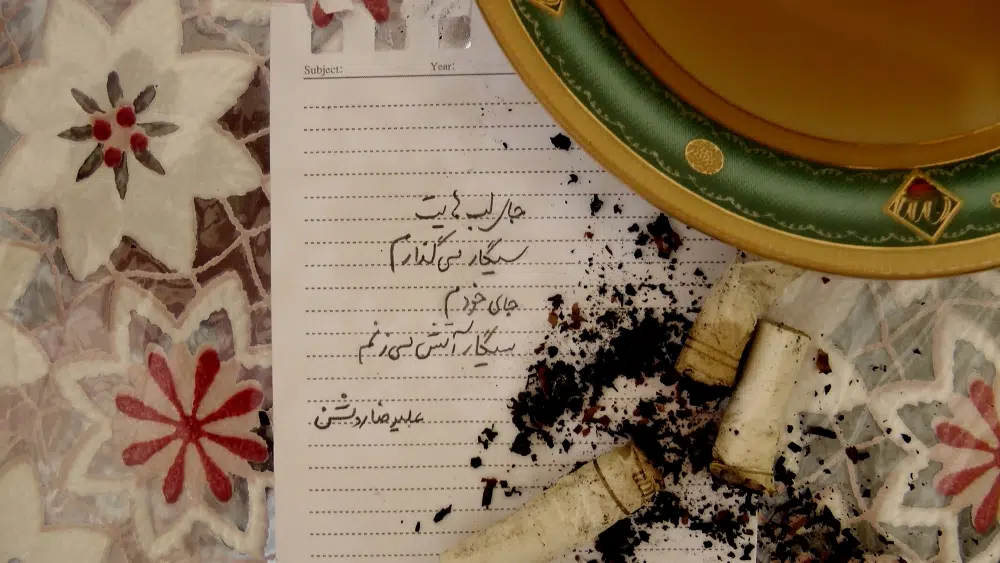 Subject: Year:
جای لب هایت
سیگار می گذارم
جای خودم
سیگار آتش می زنم
علیرضا روشن